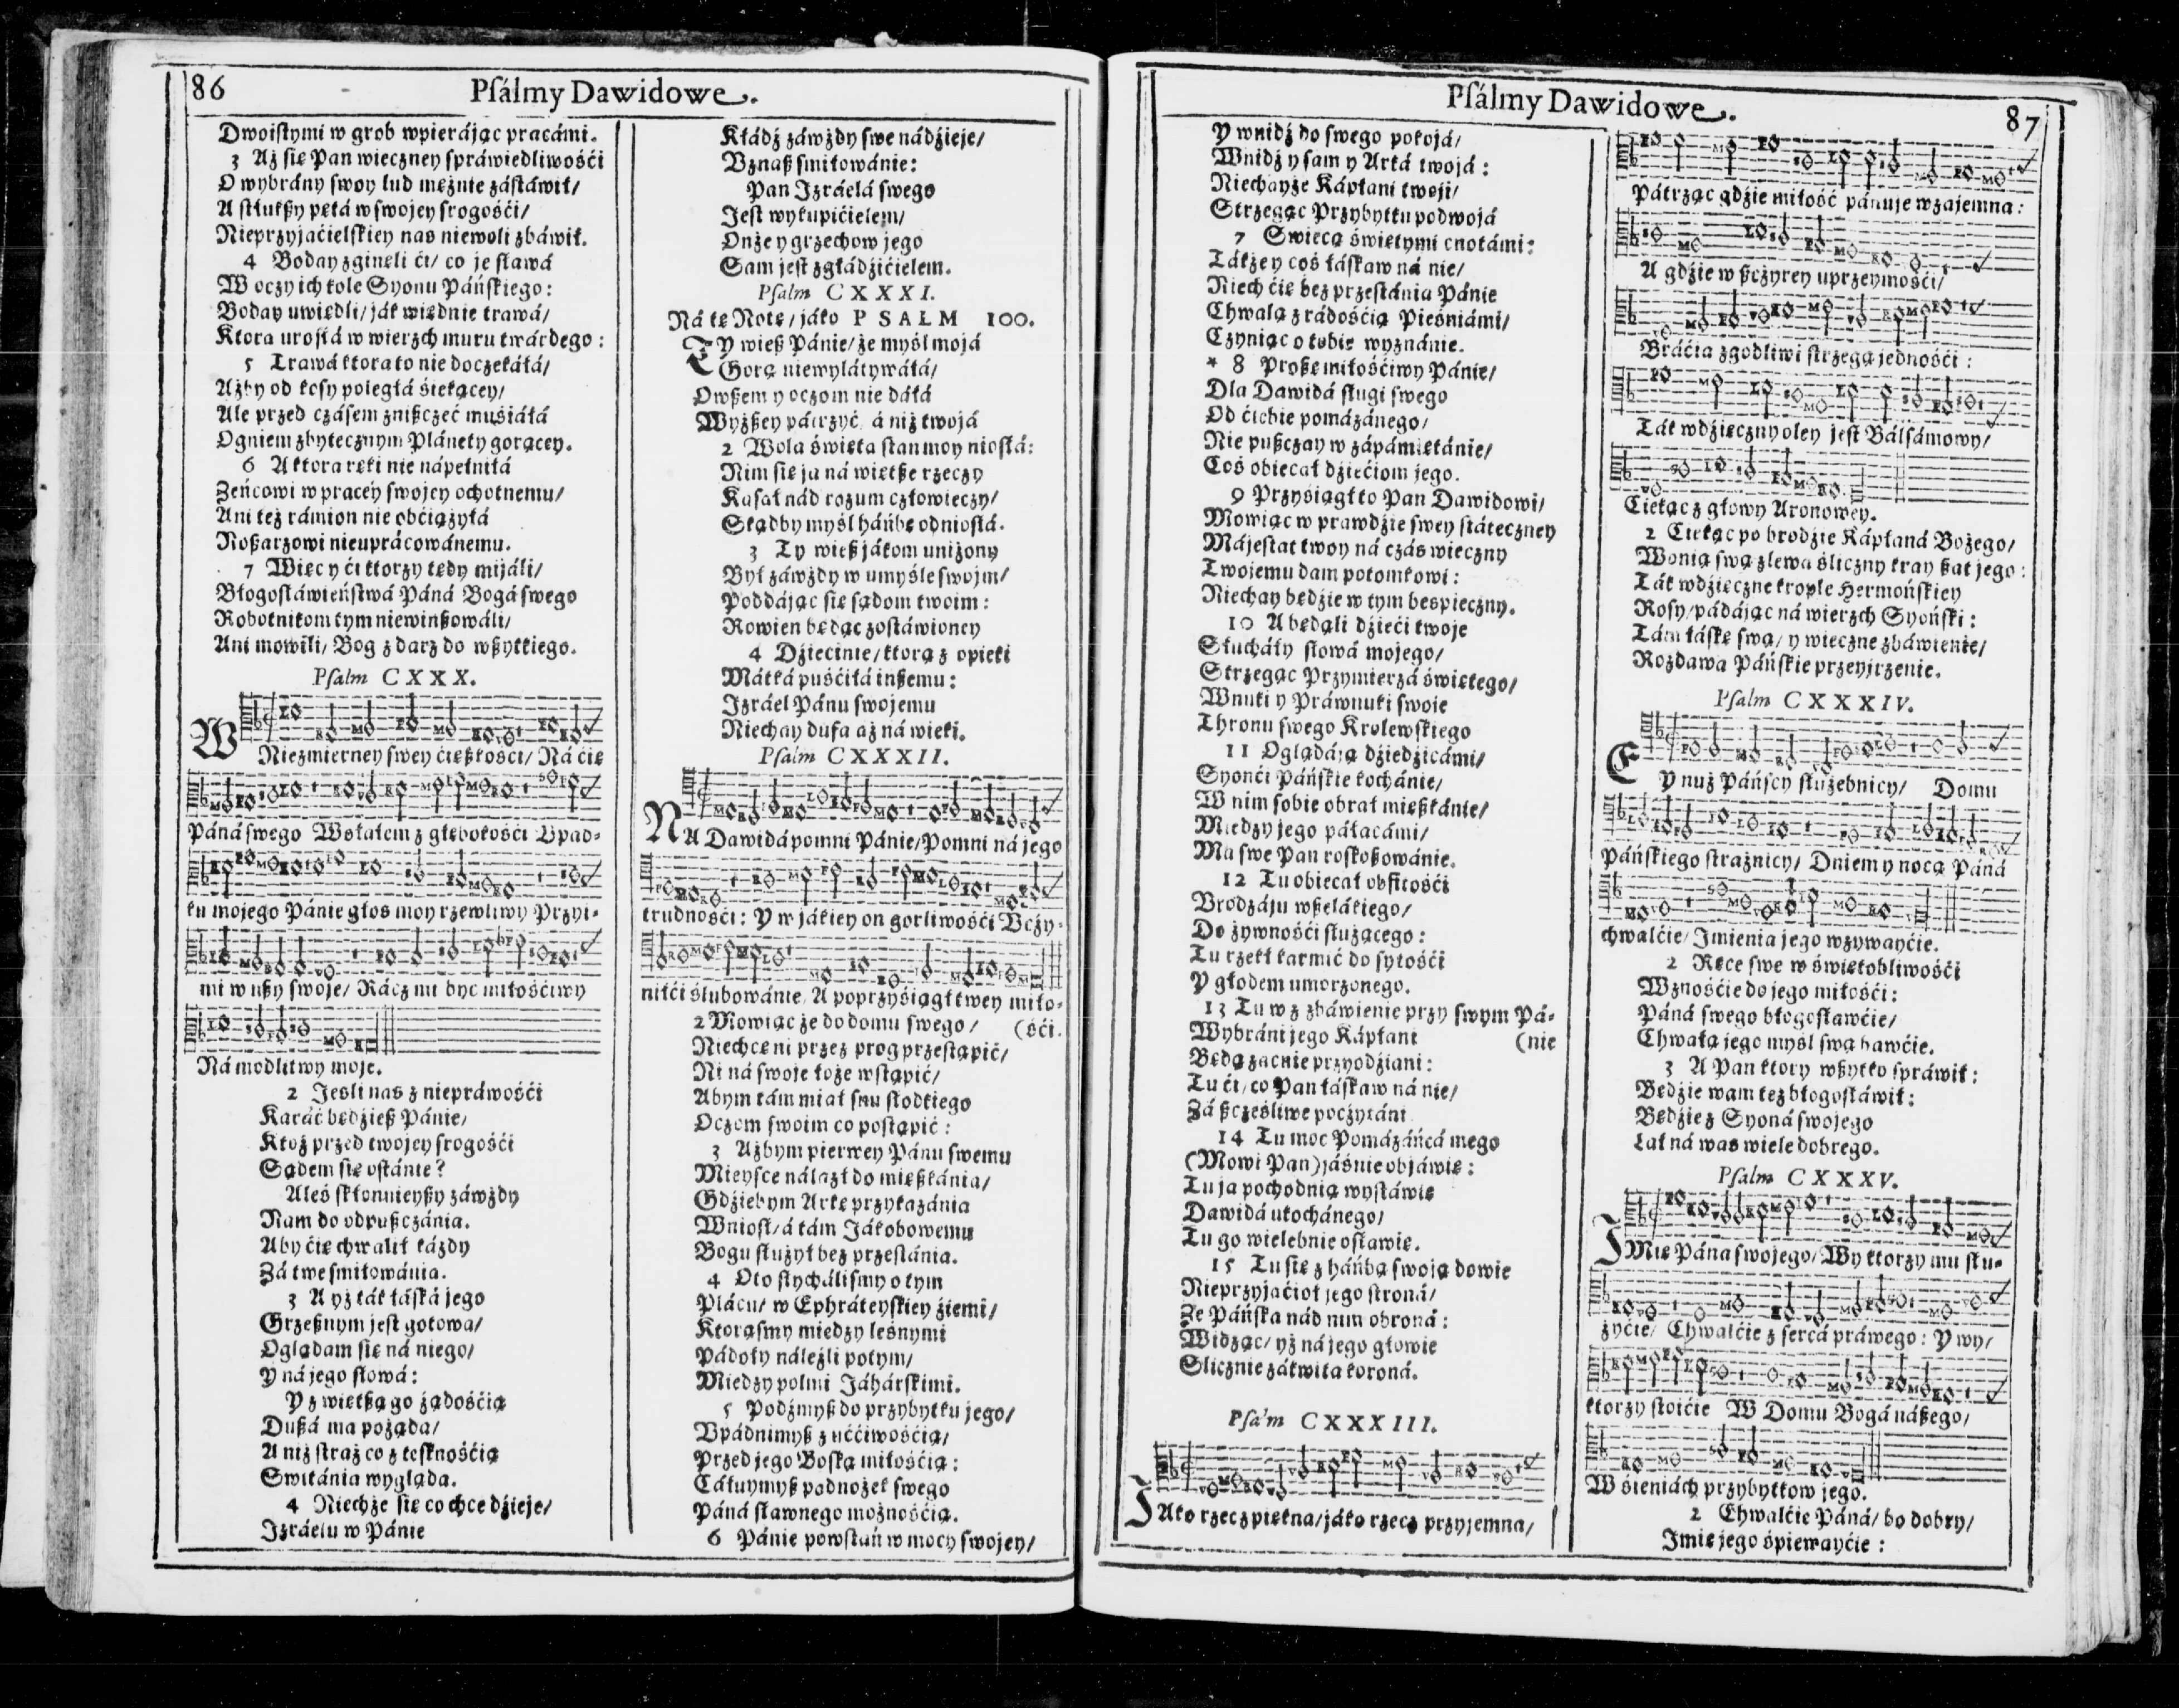 86
Psálmy Dawidowe.
Dwoistymi w grob wpierájąc pracámi.
3 Aż się Pan wieczney spráwiedliwośći
O wybrány swoy lud mężnie zástáwił/
A stłukßy pętá w swojey srogośći/
Nieprzyjaćielskiey nas niewoli zbáwił.
4 Boday zginęli ći/ co je sławá
W oczy ich kole Syonu Páńskiego:
Boday uwiędli/ ják więdnie trawá/
Ktora urosłá w wierzch muru twárdego:
5 Trawá ktora to nie doczekáłá/
Ażby od kosy poległá śiekącey/
Ale przed czásem znißczeć muśiáłá
Ogniem zbytecznym Plánety gorącey.
6 A ktora ręki nie nápełniłá
Zeńcowi w pracey swojey ochotnemu/
Ani też rámion nie obćiążyłá
Koßarzowi nieuprácowánemu.
7 Więc y ći ktorzy tędy mijáli/
Błogosłáwieństwá Páná Bogá swego
Robotnikom tym niewinßowáli/
Ani mowili/ Bog z darz do wßytkiego.
Psalm CXXX.
W Niezmierney swey ćięßkośći/ Ná ćię
Páná swego Wołałem z głębokośći Upad-
ku mojego Pánie głos moy rzewliwy Przyi-
mi w ußy swoje/ Rácz mi być miłośćiwy
Ná modlitwy moje.
2 Jesli nas z niepráwośći
Karáć będźieß Pánie/
Ktoż przed twojey srogośći
Sądem się ostánie?
Aleś skłonnieyßy záwżdy
Nam do odpußczánia.
Aby ćię chwalił káżdy
Zá twe smiłowánia.
3 A yż ták łáská jego
Grzeßnym jest gotowa/
Oglądam się ná niego/
Y ná jego słowá:
Y z więtßą go żądośćią
Dußá ma pożąda/
A niż straż co z teskność́ią
Switánia wygląda.
4 Niechże się co chce dźieje/
Izráelu w Pánie
Kłádź záwżdy swe nádźieje/
Vznaß smiłowánie:
Pan Izráelá swego
Jest wykupićielem/
Onże y grzechow jego
Sam jest zgłádźićielem.
Psalm CXXXI.
Ná tę Notę/ jáko PSALM 100.
Ty wieß Pánie/ że myśl mojá
Gorą niewylátywáłá/
Owßem y oczom nie dáłá
Wyżßey pátrzyć á niż twojá
2 Wola święta stan moy niosłá:
Nim się ja ná więtße rzeczy
Kusał nád rozum człowieczy/
Skądby myśl háńbę odniosłá.
3 Ty wieß jákom uniżony
Był záwżdy w umyśle swojm/
Poddájąc się sądom twoim:
Rowien będąc zostáwioney
4 Dźiecinie/ ktorą z opieki
Mátká puśćiłá inßemu:
Izráel Pánu swojemu
Niechay dufa aż ná wieki.
Psalm CXXXII.
NA Dawidá pomni Pánie/ Pomni ná jego
trudnośći: Y w jákiey on gorliwośći Vczy-
nilći ślubowánie, A poprzyśiągł twey miło-
(śći.
2 Mowiąc że do domu swego/
Niechcę ni przez prog przestąpić/
Ni ná swoje łoże wstąpić/
Abym tám miał snu słodkiego
Oczom swoim co postąpić:
3 Ażbym pierwey Pánu swemu
Mieysce nálazł do mießkánia/
Gdźiebym Arkę przykazánia
Wniosł/ á tám Jákobowemu
Bogu służył bez przestánia.
4 Oto słycháliśmy o tym
Plácu/ w Ephráteyskiey źiemi/
Ktorąsmy miedzy leśnymi
Pádoły náleźli potym/
Miedzy polmi Jáhárskimi.
5 Podźmyß do przybytku jego/
Vpádnimyß z uććiwośćią/
Przed jego Boską miłośćią:
Cáłuymyß podnożek swego
Páná sławnego możnośćią.
6 Pánie powstań w mocy swojey/
Psálmy Dawidowe.
87
Y wnidź do swego pokojá/
Wnidź y sam y Arká twojá:
Niechayże Kápłani twoji/
Strzegąc Przybytku podwojá
7 Swiecą świętymi cnotámi:
Tákże y coś łáskaw ná nie/
Niech ćię bez przestánia Pánie
Chwalą z rádośćią Pieśniámi/
Czyniąc o tobie wyznánie.
* 8 Proßę miłośćiwy Pánie/
Dla Dawidá sługi swego
Od ćiebie pomázánego/
Nie pußczay w zápámiętánie/
Coś obiecał dźiećiom jego.
9 Przyśiągł to Pan Dawidowi/
Mowiąc w prawdźie swey státeczney
Májestat twoy ná czás wieczny
Twojemu dam potomkowi:
Niechay będźie w tym bespieczny.
10 A będąli dźieći twoje
Słucháły słowá mojego/
Strzegąc Przymierzá świętego/
Wnuki y Práwnuki swoje
Thronu swego Krolewskiego
11 Oglądáją dźiedźicámi/
Syońći Páńskie kochánie/
W nim sobie obrał mießkánie/
Miedzy jego páłacámi/
Ma swe Pan roskoßowánie.
12 Tu obiecał obfitośći
Vrodzáju wßelákiego/
Do żywnośći służącego:
Tu rzekł karmić do sytośći
Y głodem umorzonego.
13 Tu wz zbáwienie przy swym Pá-
Wybráni jego Kápłani
(nie
Będą zacnie przyodźiani:
Tu ći/ co Pan łáskaw ná nie/
Zá ßczęśliwe poczytáni
14 Tu moc Pomázáńcá mego
(Mowi Pan) jáśnie objáwię:
Tu ja pochodnią wystáwię
Dawidá ukochánego/
Tu go wielebnie osławię.
15 Tu się z háńbą swoją dowie
Nieprzyjaćioł jego stroná/
Ze Páńska nád nim obroná:
Widząc/ yż ná jego głowie
Slicznie zákwita koroná.
Psalm CXXXIII.
JAko rzecz piękna/ jáko rzecz przyjemna/
Pátrząc gdźie miłość pánuje wzajemna:
A gdźie w ßczyrey uprzeymośći/
Bráćia zgodliwi strzegą jednośći:
Ták wdźięczny oley jest Bálsámowy/
Ciekąc z głowy Aronowey.
2 Ciekąc po brodźie Kápłaná Bożego/
Wonią swą zlewa śliczny kray ßat jego:
Ták wdźięczne krople Hermońskiey
Rosy/ pádájąc ná wierzch Syoński:
Tám łáskę swą/ y wieczne zbáwienie/
Rozdawa Páńskie przeyjrzenie.
Psalm CXXXIV.
EY nuż Páńscy służebnicy/ Domu
Páńskiego strażnicy/ Dniem y nocą Páná
chwalćie/ Imienia jego wzywayćie.
2 Ręce swe w świętobliwośći
Wznośćie do jego miłośći:
Páná swego błogosławćie/
Chwałą jego myśl swą bawćie.
3 A Pan ktory wßytko spráwił:
Będźie wam też błogosłáwił:
Będźie z Syoná swojego
Lał ná was wiele dobrego.
Psalm CXXXV.
IMię Pána swojego/ Wy ktorzy mu słu-
żyćie/ Chwalćie z sercá práwego: Y wy/
ktorzy stoićie W Domu Bogá náßego/
W śieniách przybytkow jego.
2 Chwalćie Páná/ bo dobry/
Imię jego śpiewayćie: